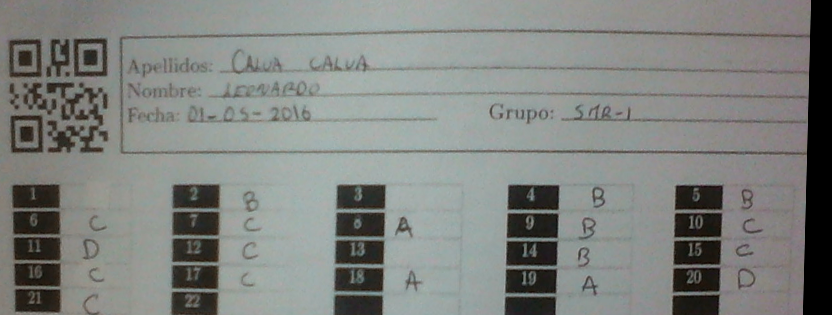 Apellidos: CALVA CALVA
Nombre: LEONARDO
Fecha: 01-05-2016 Grupo: SMR-1
1 2 B 3 4 B 5 B
6 C 7 C 8 A 9 B 10 C
11 D 12 C 13 14 B 15 C
16 C 17 C 18 A 19 A 20 D
21 C 22